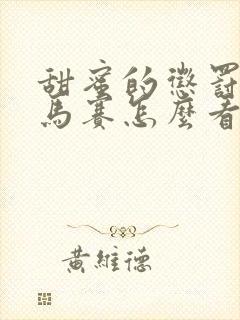 甜蜜的懲罰
馬賽怎麼看
黃維德